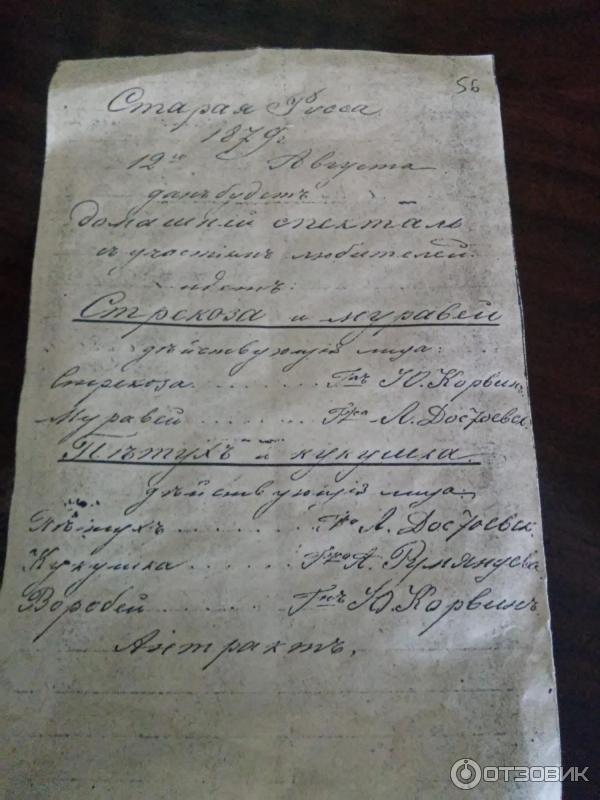 56
Старая Русса
1879г.
12го Августа
данъ будетъ
домашній спектакль
съ участіемъ любителей.
идетъ:
Стрекоза и муравей
дѣйствующія лица:
Стрекоза . . . . . . . Гнъ Ю. Корвинъ
Муравей . . . . . . . Гжа Л. Достоевск
Пѣтухъ и кукушка.
дѣйствующія лица
Пѣтухъ . . . . . . . Гжа Л. Достоевск
Кукушка . . . . . . . Гжа А. Румянцева
Воробей . . . . . . . Гнъ Ю. Корвинъ
Антрактъ.
ОТЗОВИК